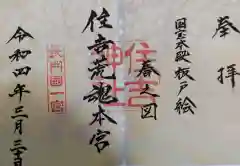 奉拝
国宝本殿板戸絵
春之図
住吉荒魂本宮
住吉神社
長門國一宮
令和四年三月三十日